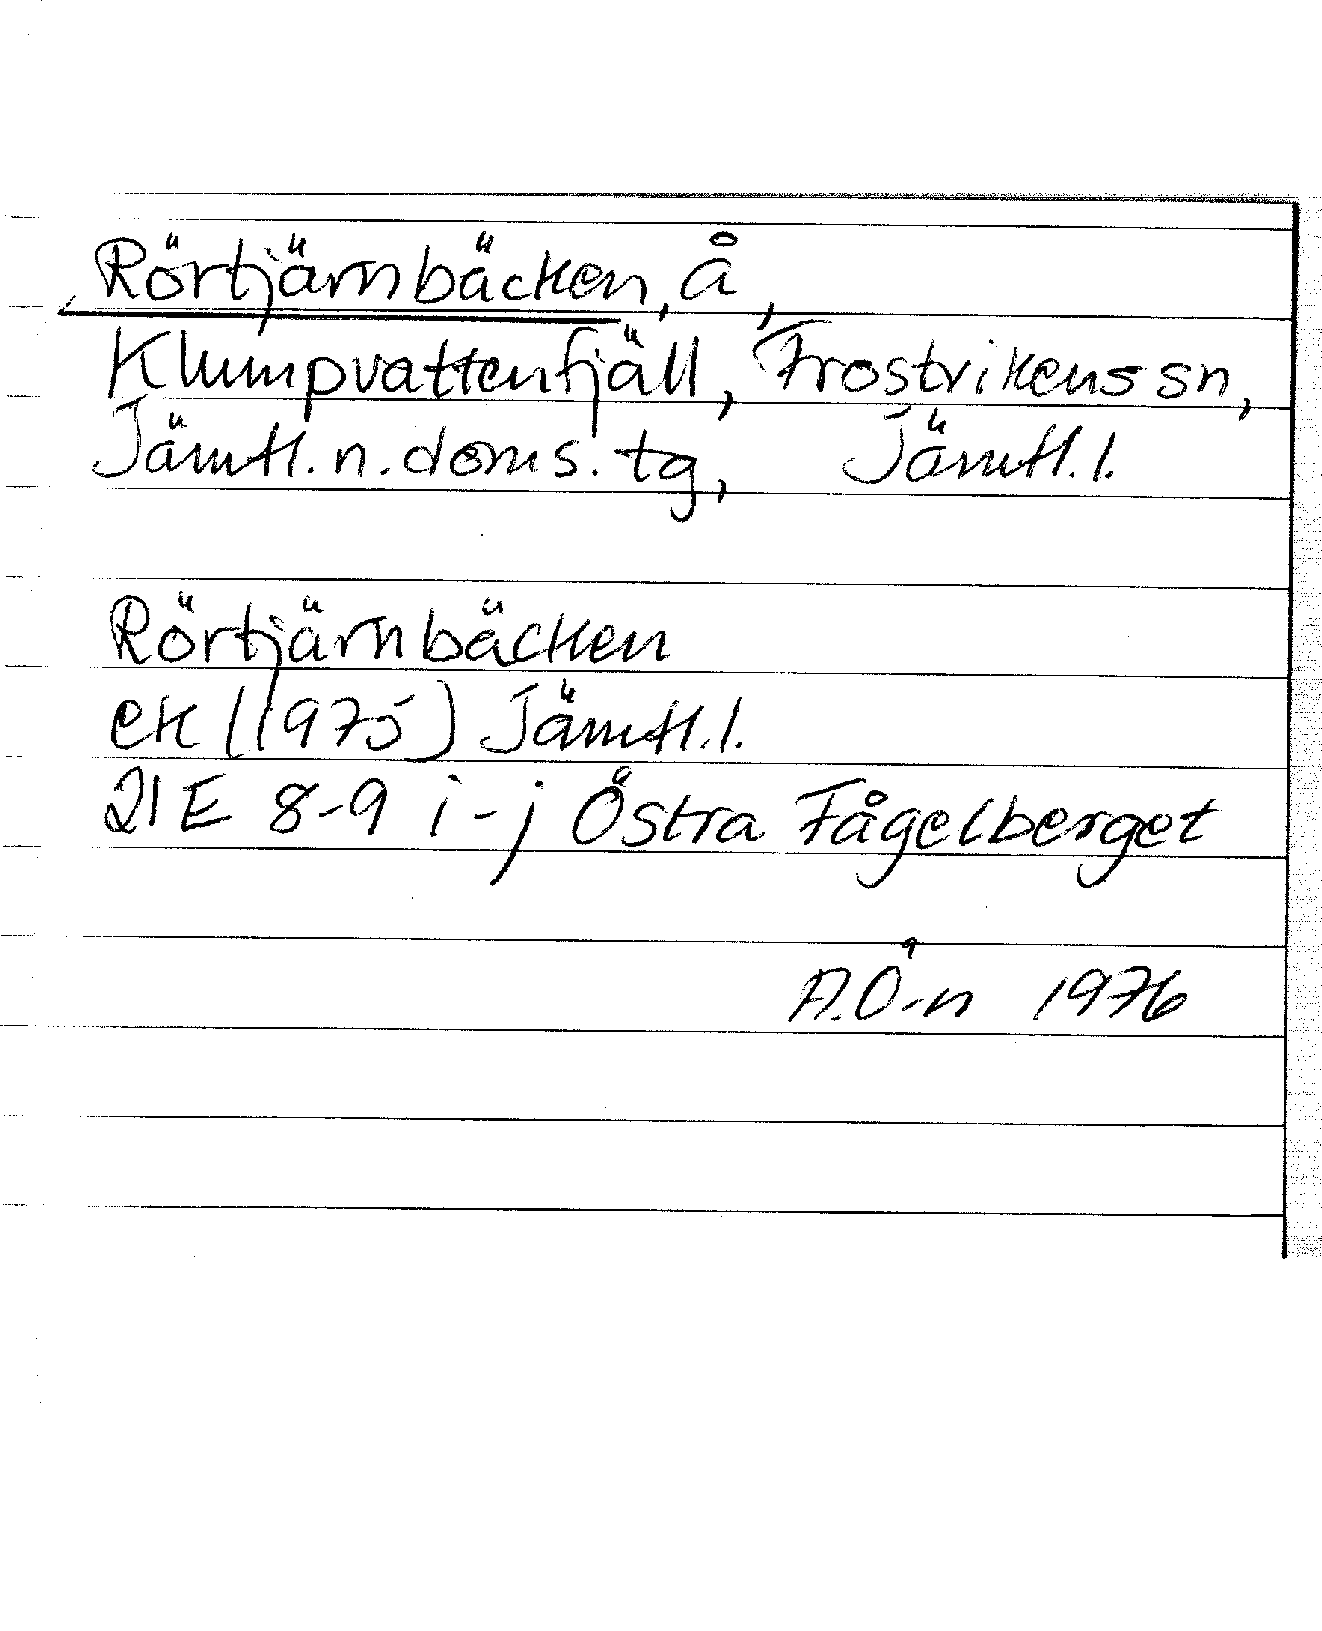 Rörtjärnbäcken, å,
Klumpvattenfjäll, Frostvikens sn,
Jämtl. n. doms. tg, Jämtl. l.
Rörtjärnbäcken
ek (1975) Jämtl. l.
21E 8-9 i-j Östra Fågelberget
A.Ö-n 1976